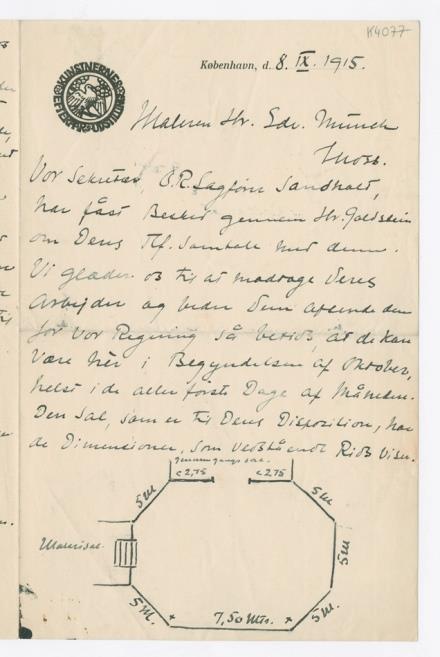 K4077
KUNSTNERNES
EFTERAARSUDSTILLING
København, d. 8. IX. 1915.
Maleren Hr. Edv. Munch
Moss.
Vor Sekretær, O.R.Sagfører Sandholt,
har fået Besked gennem Hr. Goldstein
om Deres Tlf. Samtale med denne.
Vi glæder os til at modtage Deres
Arbejder og beder Dem afsende dem
for vor Regning så betids, at de kan
være her i Begyndelsen af Oktober,
helst i de aller første Dage af Måneden.
Den Sal, som er til Deres Disposition, har
de Dimensioner, som vedstående Rids viser.
gennemgangssal.
c 2,75 c 2,75
5 M 5 M
Malerisal.
5 M
5 M. 7,50 Mts. 5 M.